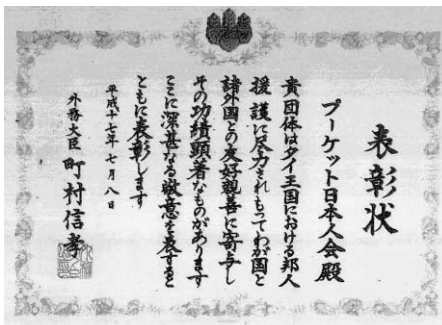 表彰状
プーケット日本人会殿
貴団体はタイ王国における邦人
援護に尽力されもってわが国と
諸外国との友好親善に寄与し
その功績顕著なものがあります
ここに深甚なる敬意を表すると
ともに表彰します
平成十七年七月八日
外務大臣 町村信孝